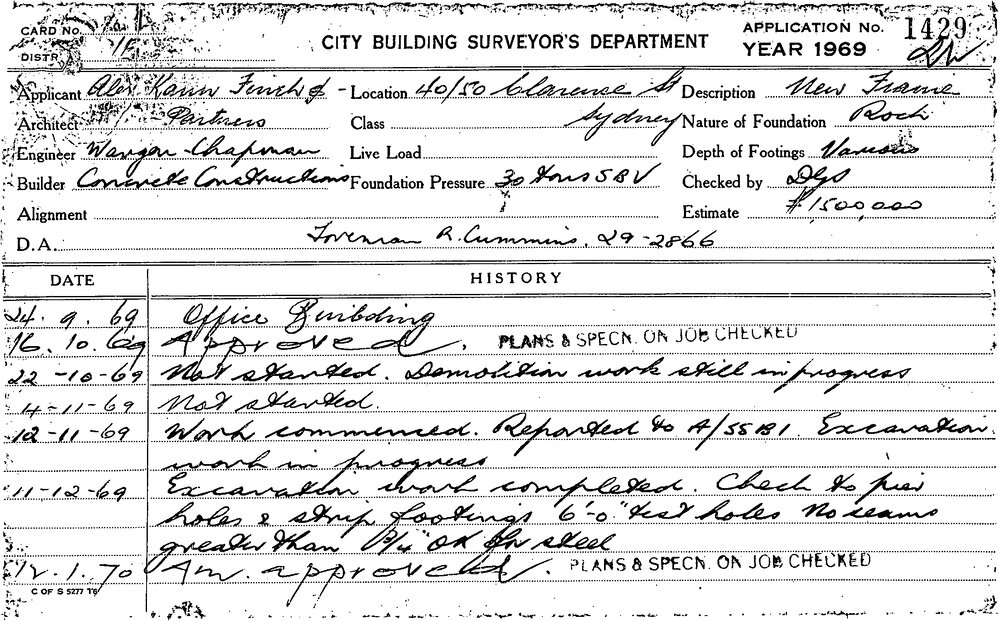 CARD No.
DISTR.
CITY BUILDING SURVEYOR'S DEPARTMENT
APPLICATION No. 1429
YEAR 1969
Applicant Alex Karin Finch & - Location 40/50 Clarence St Description New Frame
Architect Partners Class Sydney Nature of Foundation Rock
Engineer Wargon Chapman Live Load Depth of Footings Various
Builder Concrete Constructions Foundation Pressure 30 tons SBV Checked by
Alignment Estimate $1500,000
D.A. Foreman R. Cummins. 29-2866
DATE HISTORY
24. 9. 69 Office Building
16. 10. 69 Approved. PLANS & SPECN. ON JOB CHECKED
22-10-69 Not started. Demolition work still in progress
4-11-69 Not started.
12-11-69 Work commenced. Reported to A/SSB1. Excavation
work in progress
11-12-69 Excavation work completed. Check to pier
holes & strip footings 6'-0" test holes No seams
greater than OK for steel
12. 1. 70 Am. approved. PLANS & SPECN. ON JOB CHECKED
C OF S 5277 T6